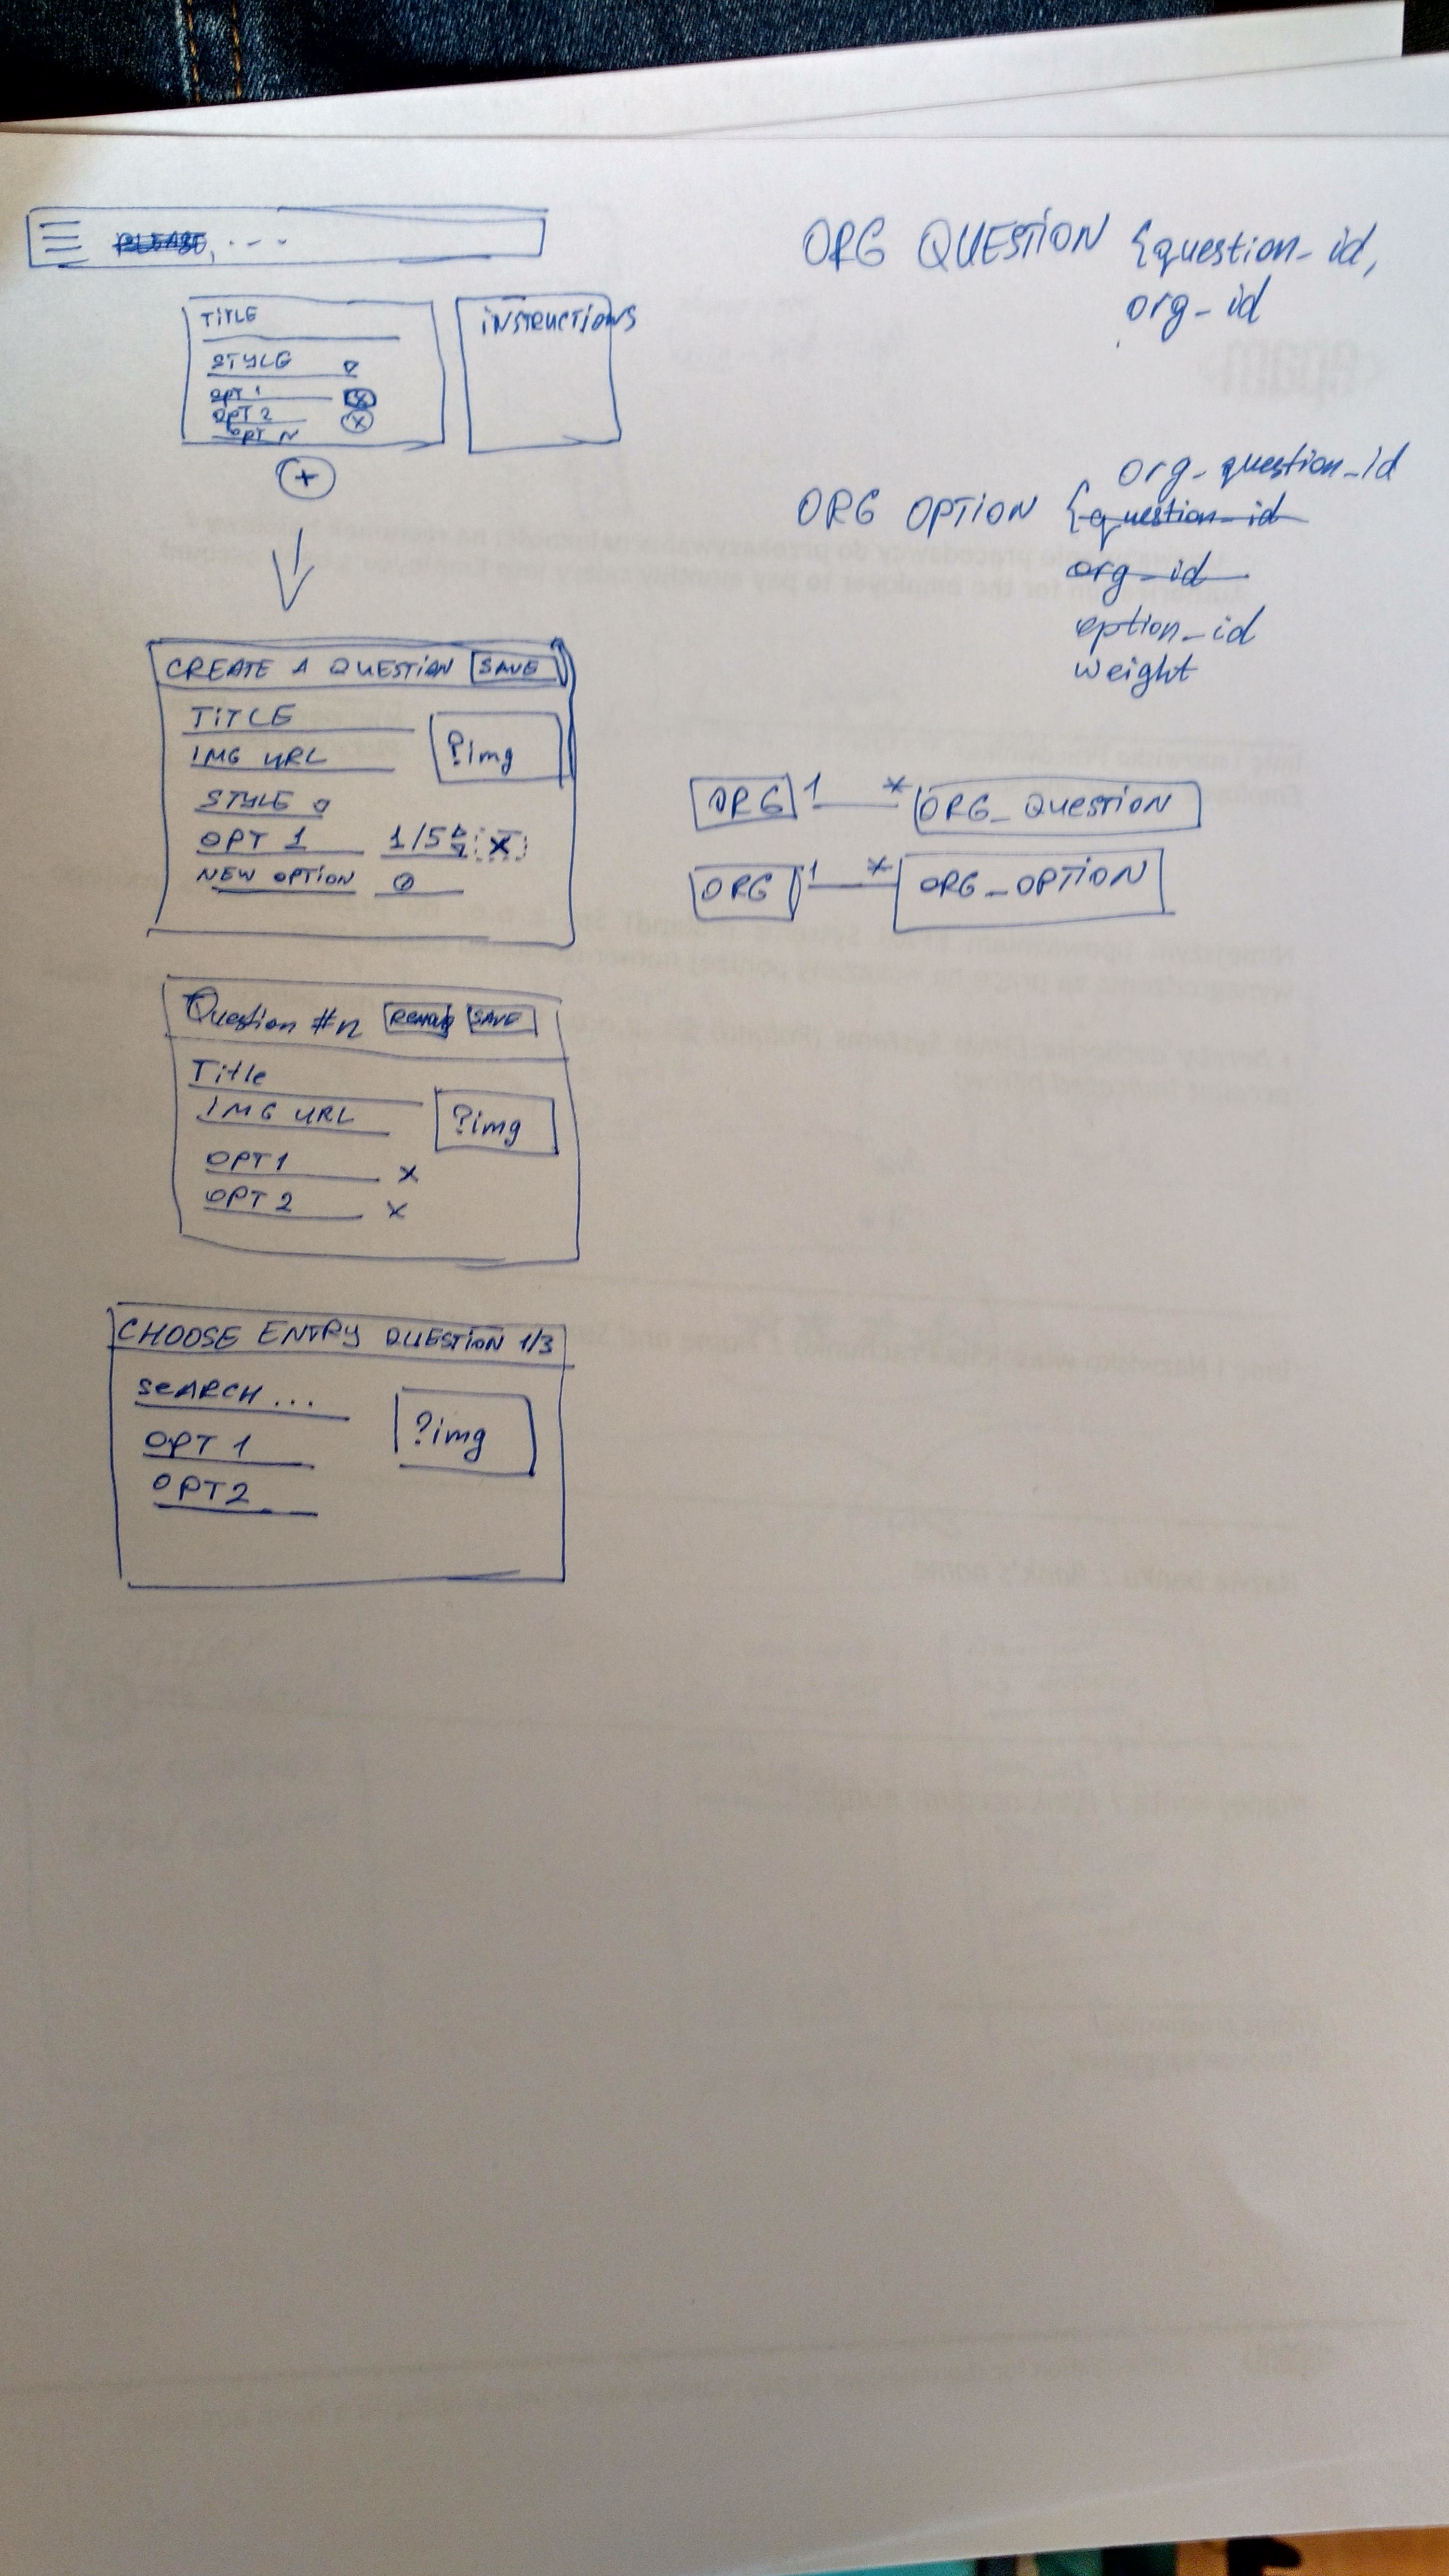 TITLE
STYLE
OPT 1
OPT 2
OPT N
+
INSTRUCTIONS
CREATE A QUESTION SAVE
TITLE
IMG URL
?img
STYLE
OPT 1 1/5 X
NEW OPTION
Question #n REMOVE SAVE
Title
IMG URL
?img
OPT1 X
OPT 2 X
CHOOSE ENTRY QUESTION 1/3
SEARCH ...
?img
OPT 1
OPT2
ORG QUESTION {question_id,
org_id
org_question_id
ORG OPTION {question_id
org_id
option_id
weight
ORG 1 * ORG_QUESTION
ORG 1 * ORG_OPTION